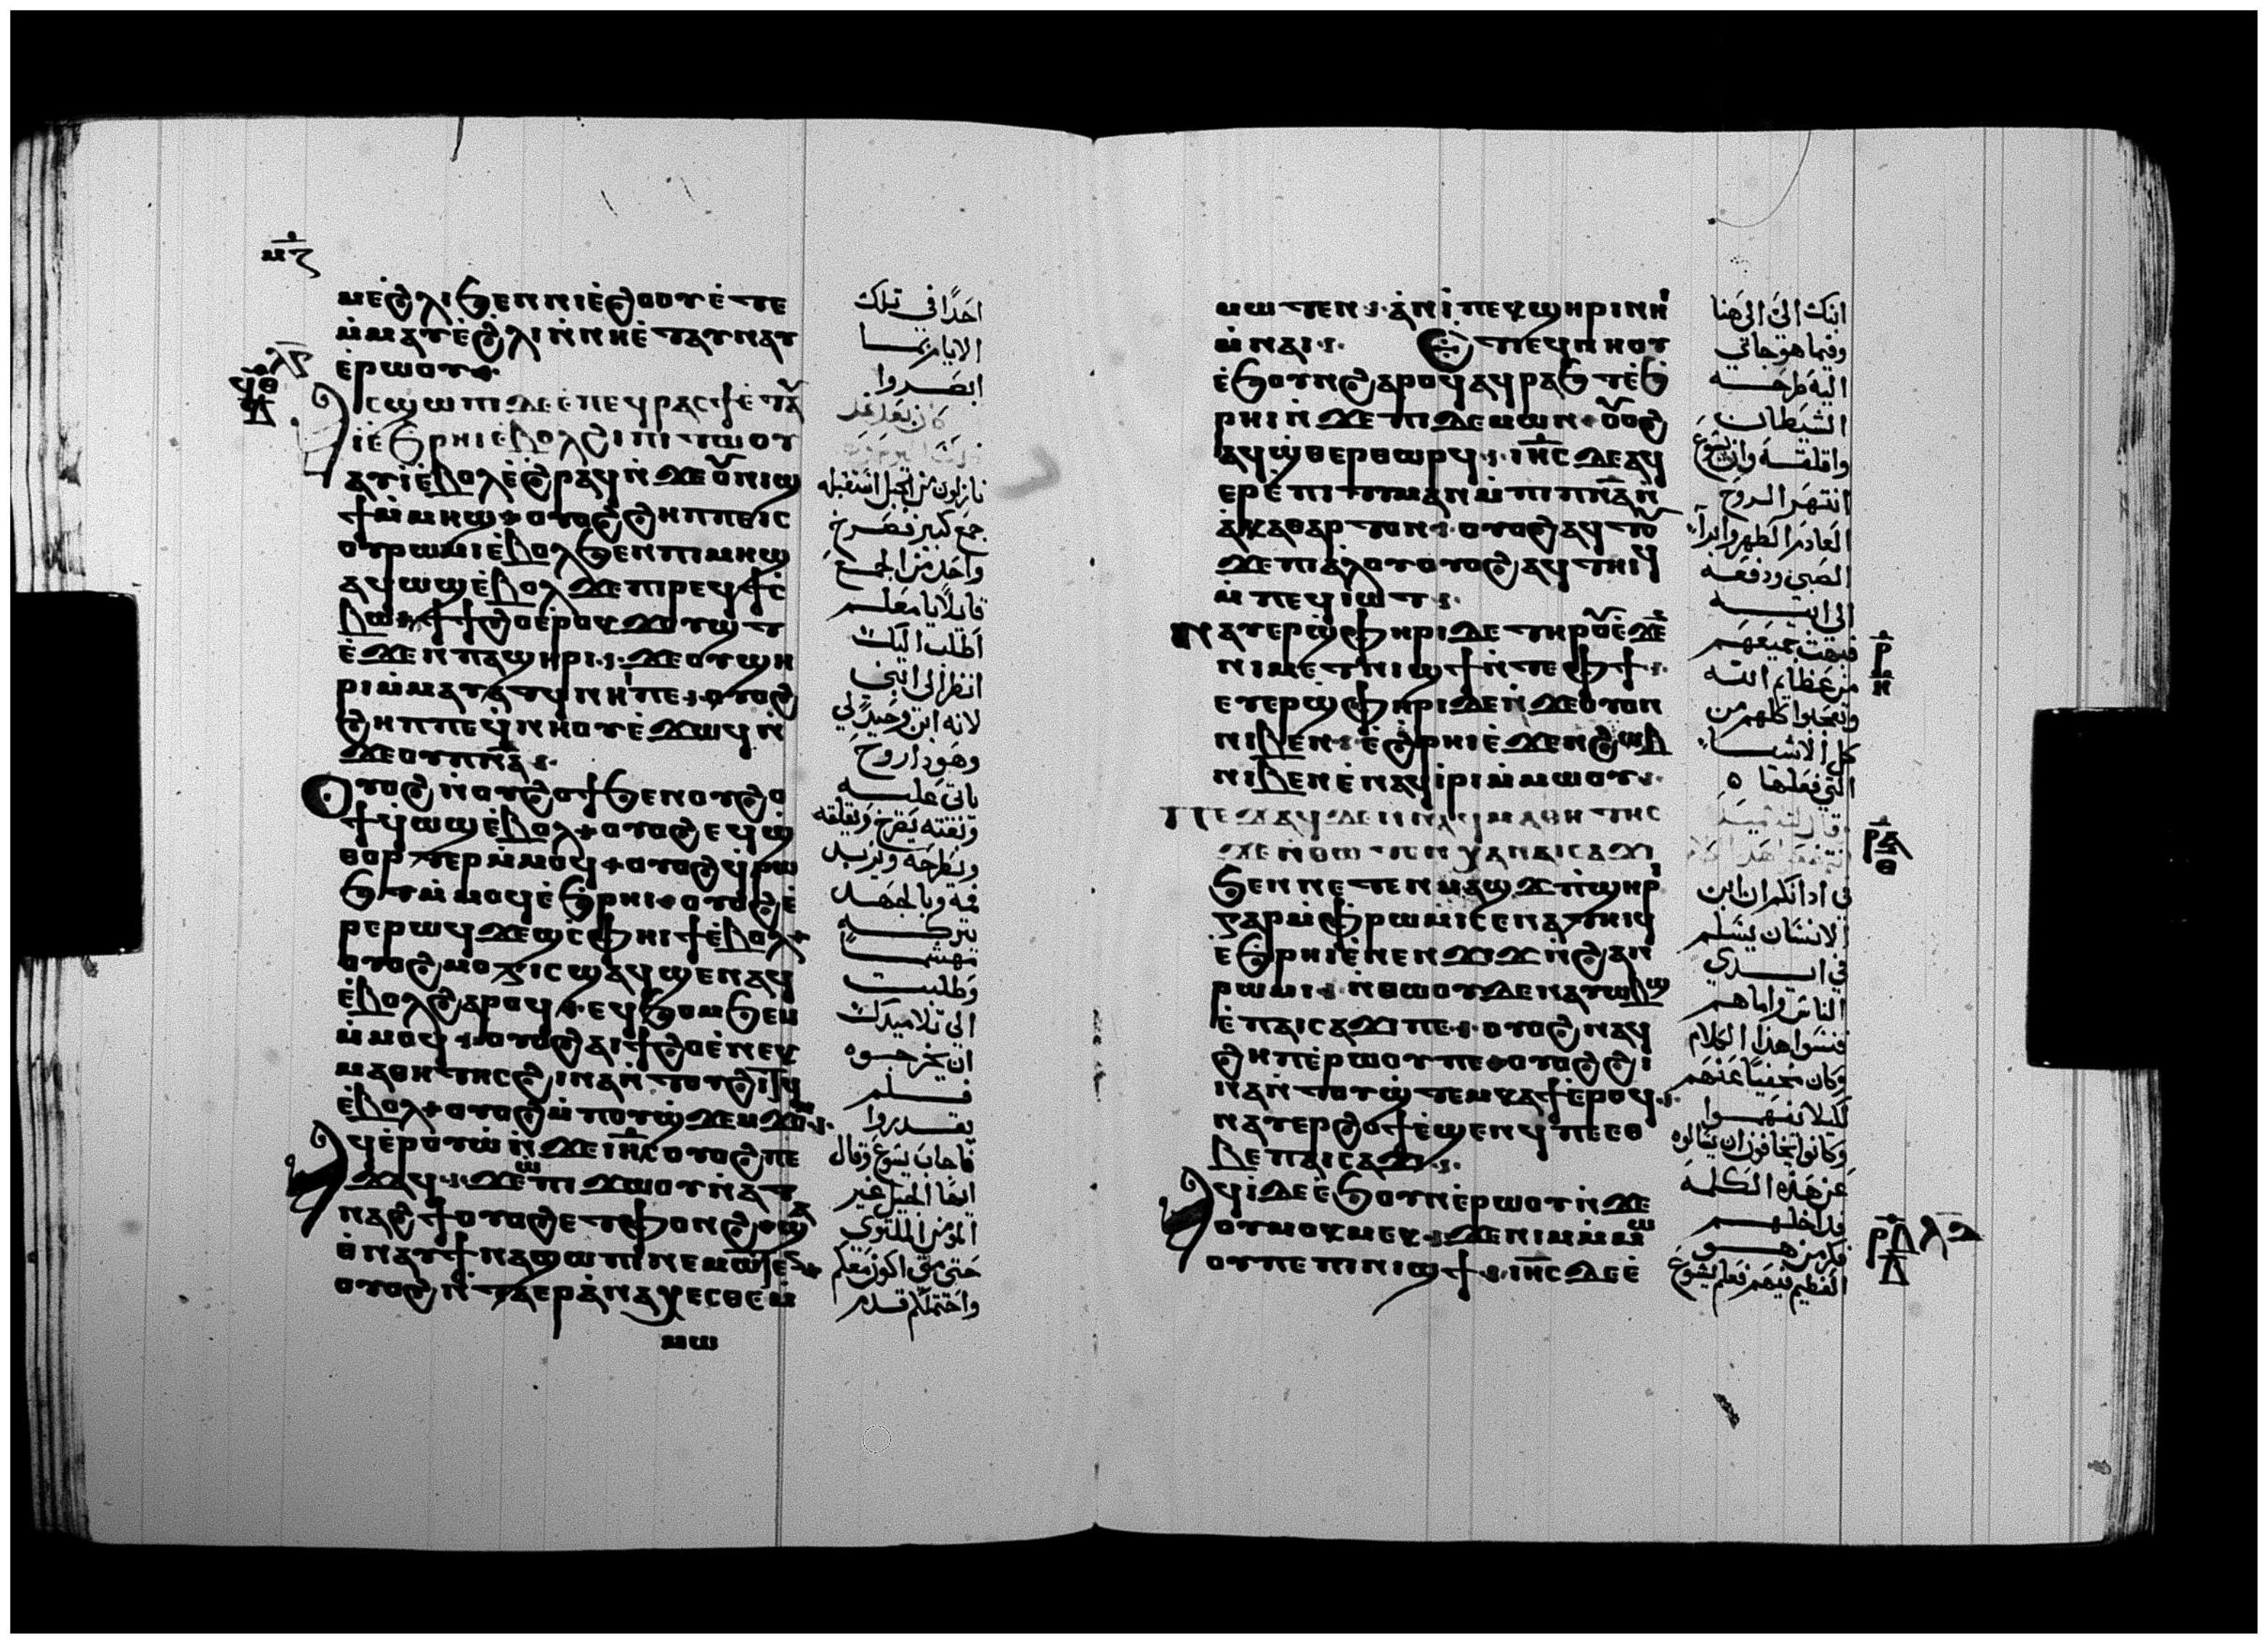 ⲙ̅ⲍ
ⲙⲉϩⲗⲓϧⲉⲛⲛⲓⲉϩⲟⲟⲩⲉⲧⲉ
ⲙ̀ⲙⲁⲩⲉ̀ϩⲗⲓⲛ̀ⲛⲏⲉ̀ⲧⲁⲩⲛⲁⲩ
ⲉ̀ⲣⲱⲟⲩ
ⲗ̅ⲋ
ϥ̅ⲑ
ⲇ
ⲁⲥϣⲱⲡⲓⲇⲉⲉ̀ⲡⲉϥⲣⲁⲥϯⲉ̀ⲧⲁⲩ
ⲓ̀ⲉ̀ϧⲣⲏⲓⲉ̀ⲃⲟⲗϩⲓⲡⲓⲧⲱⲟⲩ
ⲁϥⲓ̀ⲉ̀ⲃⲟⲗⲉ̀ϩⲣⲁϥⲛ̀ϫⲉⲟⲩⲛⲓϣ
ϯⲙ̀ⲙⲏϣ ⲟⲩⲟϩϩⲏⲡⲡⲉⲓⲥ
ⲟⲩⲣⲱⲙⲓⲉ̀ⲃⲟⲗϧⲉⲛⲡⲓⲙⲏϣ
ⲁϥⲱϣⲉ̀ⲃⲟⲗϫⲉⲡⲓⲣⲉϥϯⲥ̀
ⲃⲱ ϯϯϩⲟⲉ̀ⲣⲟⲕϫⲟⲩϣⲧ
ⲉ̀ϫⲉⲛⲡⲁϣⲏⲣⲓ ϫⲉⲟⲩϣⲏ
ⲣⲓⲙ̀ⲙⲁⲩⲁⲧϥⲛⲏⲓⲡⲉ ⲟⲩⲟϩ
ϩⲏⲡⲡⲉϥ̀ⲛⲏⲟⲩⲉ̀ϫⲱϥⲛ̀
ϫⲉⲟⲩⲡⲛ̅ⲁ̅
ⲟⲩⲟϩⲛ̀ⲟⲩϩⲟϯϧⲉⲛⲟⲩϩⲟ
ϯϥⲱϣⲉ̀ⲃⲟⲗ ⲟⲩⲟϩⲉϥϣ̀
ⲑⲟⲣⲧⲉⲣⲙ̀ⲙⲟϥ ⲟⲩⲟϩϥ̀ⲣⲱ
ϧⲧⲙ̀ⲙⲟϥⲉ̀ϧⲣⲏⲓ ⲟⲩⲟϩⲉ̀
ⲣⲉⲣⲱϥϫⲉϣⲥ̀ⲫⲏⲓϯⲉ̀ⲃⲟⲗ
ⲟⲩⲟϩⲙⲟⲅⲓⲥϣⲁϥϣⲉⲛⲁϥ
ⲉ̀ⲃⲟⲗϩⲁⲣⲟϥ ⲉϥϧⲟⲙϧⲉⲙ
ⲙ̀ⲙⲟϥ ⲟⲩⲟϩⲁⲓϯϩⲟⲉ̀ⲛⲉⲕ
ⲙⲁⲑⲏⲧⲏⲥϩⲓⲛⲁⲛ̀ⲧⲟⲩϩⲓⲧϥ
ⲉ̀ⲃⲟⲗ ⲟⲩⲟϩⲙ̀ⲡⲟⲩϣ̀ϫⲉⲙϫⲟⲙ
ⲁϥⲉ̀ⲣⲟⲩⲱ̀ⲛ̀ϫⲉⲓⲏ̅ⲥ̅ⲟⲩⲟϩⲡⲉ
ϫⲁϥ ϫⲉⲱ̀ⲡⲓϫⲱⲟⲩⲛ̀ⲁⲧ
ⲛⲁϩϯⲟⲩⲟϩⲉⲧⲫⲟⲛϩ ϣⲁ
ⲑ̀ⲛⲁⲩϯⲛⲁϣⲱⲡⲓⲛⲉⲙⲱⲧⲉⲛ
ⲟⲩⲟϩⲛ̀ⲧⲁⲉⲣⲁ̀ⲛⲁⲭⲉⲥⲑⲉⲙ̀
ⲙⲱ
احدًا في تلك
الايام مما
ابصروا
كان بعد غد
نازلون من الجبل استقبله
جمع كبير فصرخ
واحد من الجمع
قايلا يا معلم
اطلب اليك
انظر الى ابني
لانه ابن وحيد لي
وهوذا روح
ياتي عليه
وبغته يصرخ ويقلقه
ويطرحه ويزبد
فمه وبالجهد
يتركه
مهشما
وطلبت
الى تلاميدك
ان يخرجوه
فلم
يقدروا
فاجاب يسوع وقال
ايها الجيل غير
المومن الملتوي
حتى متى اكون معكم
واحتملكم قدم
ⲙⲱⲧⲉⲛ ⲁ̀ⲛⲓⲡⲉⲕϣⲏⲣⲓⲛⲏⲓ
ⲙ̀ⲛⲁⲓ ϩⲱⲥ ⲡⲉϥⲛⲏⲟⲩ
ⲉ̀ϧⲟⲩⲛϩⲁⲣⲟϥⲁϥⲣⲁϧⲧϥⲉ̀ϧ
ⲣⲏⲓⲛ̀ϫⲉⲡⲓⲇⲉⲙⲱⲛ ⲟⲩⲟϩ
ⲁϥϣ̀ⲑⲉⲣⲑⲱⲣϥ ⲓⲏ̅ⲥ̅ⲇⲉⲁϥ
ⲉⲣⲉ̀ⲡⲓⲧⲓⲙⲁⲛⲙ̀ⲡⲓⲡⲛ̅ⲁ̅ⲛ̀
ⲁ̀ⲕⲁⲑⲁⲣⲧⲟⲛ ⲟⲩⲟϩⲁϥⲧⲟⲩ
ϫⲉⲡⲓⲁ̀ⲗⲟⲩⲟⲩⲟϩⲁϥⲧⲏⲓϥ
ⲙ̀ⲡⲉϥⲓⲱⲧ
ⲛⲁⲩⲉⲣϣ̀ⲫⲏⲣⲓⲇⲉⲧⲏⲣⲟⲩⲉ̀ϫⲉⲛ
ⲛⲓⲙⲉⲧⲛⲓϣϯⲛ̀ⲧⲉⲫϯ
ⲉⲩⲉⲣϣ̀ⲫⲏⲣⲓⲇⲉⲛ̀ϫⲉⲟⲩⲟⲛ
ⲛⲓⲃⲉⲛ ⲉ̀ϩⲣⲏⲓⲉ̀ϫⲉⲛϩⲱⲃ
ⲛⲓⲃⲉⲛⲉ̀ⲛⲁϥⲓ̀ⲣⲓⲙ̀ⲙⲱⲟⲩ
ⲡⲉϫⲁϥⲇⲉⲛ̀ⲛⲉϥⲙⲁⲑⲏⲧⲏⲥ
ϫⲉⲛ̀ⲑⲱⲧⲉⲛⲭⲁⲛⲁⲓⲥⲁϫⲓ
ϧⲉⲛⲛⲉⲧⲉⲛⲙⲁϣϫ ⲡ̀ϣⲏⲣⲓ
ⲅⲁⲣⲙ̀ⲫ̀ⲣⲱⲙⲓⲥⲉⲛⲁⲧⲏⲓϥ
ⲉ̀ϧⲣⲏⲓⲉ̀ⲛⲉⲛϫⲓϫⲛ̀ϩⲁⲛ
ⲣⲱⲙⲓ ⲛ̀ⲑⲱⲟⲩⲇⲉⲛⲁⲩⲱⲃϣ
ⲉ̀ⲡⲁⲓⲥⲁϫⲓⲡⲉ ⲟⲩⲟϩⲛⲁϥ
ϩⲏⲡⲉ̀ⲣⲱⲟⲩⲡⲉ ⲟⲩⲟϩϩⲓ
ⲛⲁⲛ̀ⲧⲟⲩϣ̀ⲧⲉⲙⲕⲁϯⲉ̀ⲣⲟϥ
ⲛⲁⲩⲉⲣϩⲟϯⲉ̀ϣⲉⲛϥⲡⲉⲉⲑ
ⲃⲉⲡⲁⲓⲥⲁϫⲓ
ⲁϥⲓ̀ⲇⲉⲉ̀ϧⲟⲩⲛⲉ̀ⲣⲱⲟⲩⲛ̀ϫⲉ
ⲟⲩⲙⲟⲕⲙⲉⲕ ϫⲉⲛⲓⲙⲙ̀ⲙⲱ
ⲟⲩⲡⲉⲡⲓⲛⲓϣϯ ⲓⲏ̅ⲥ̅ⲇⲉⲉ̀
ابنك الي الى هنا
وفيما هو جاتي
اليه طرحه
الشيطان
واقلقه وان يسوع
انتهر الروح
العادم الطهر وابرا
الصبي ودفعه
الى ابيه
فبهت جميعهم
من عظايم الله
وتعجبوا كلهم من
كل الاشيا
التي فعلها
في ادانكم ان ابن
الانسان يسلم
في ايدي
الناس واما هم
فنسوا هدا الكلام
وكان مخفيا عنهم
لكيلا يفهموا
وكانوا يخافون ان يسالوه
عن هذه الكلمة
فداخلهم
فكر من هو
العظيم فيهم فعلم يسوع
ⲣ̅
ⲏ
ⲣ̅ⲁ
ⲑ
ⲣ̅ⲃ ⲗ̅ⲍ
ⲇ